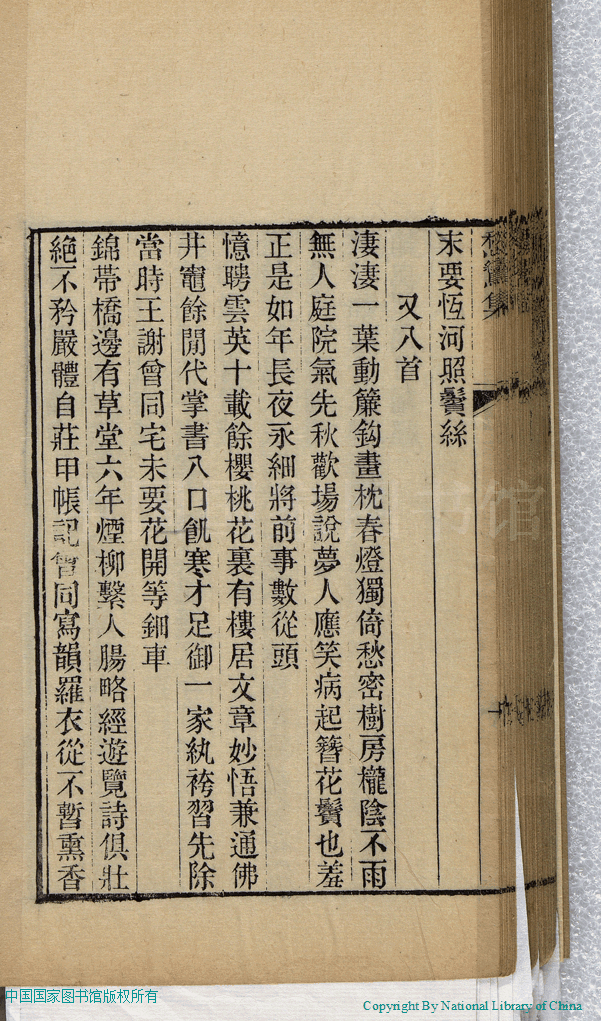 末要恆河照鬢絲
又八首
淒淒一葉動簾鈎畫枕春燈獨倚愁密樹房櫳陰不雨
無人庭院氣先秋歡場說夢人應笑病起簪花鬢也羞
正是如年長夜永細將前事數從頭
憶聘雲英十載餘櫻桃花裏有樓居文章妙悟兼通佛
井竈餘閒代掌書八口飢寒才足御一家紈袴習先除
當時王謝曾同宅未要花開等鈿車
錦帶橋邊有草堂六年煙柳繫人腸略經遊覽詩俱壯
絕不矜嚴體自莊甲帳記曾同寫韻羅衣從不暫熏香
中国国家图书馆版权所有
Copyright By National Library of China